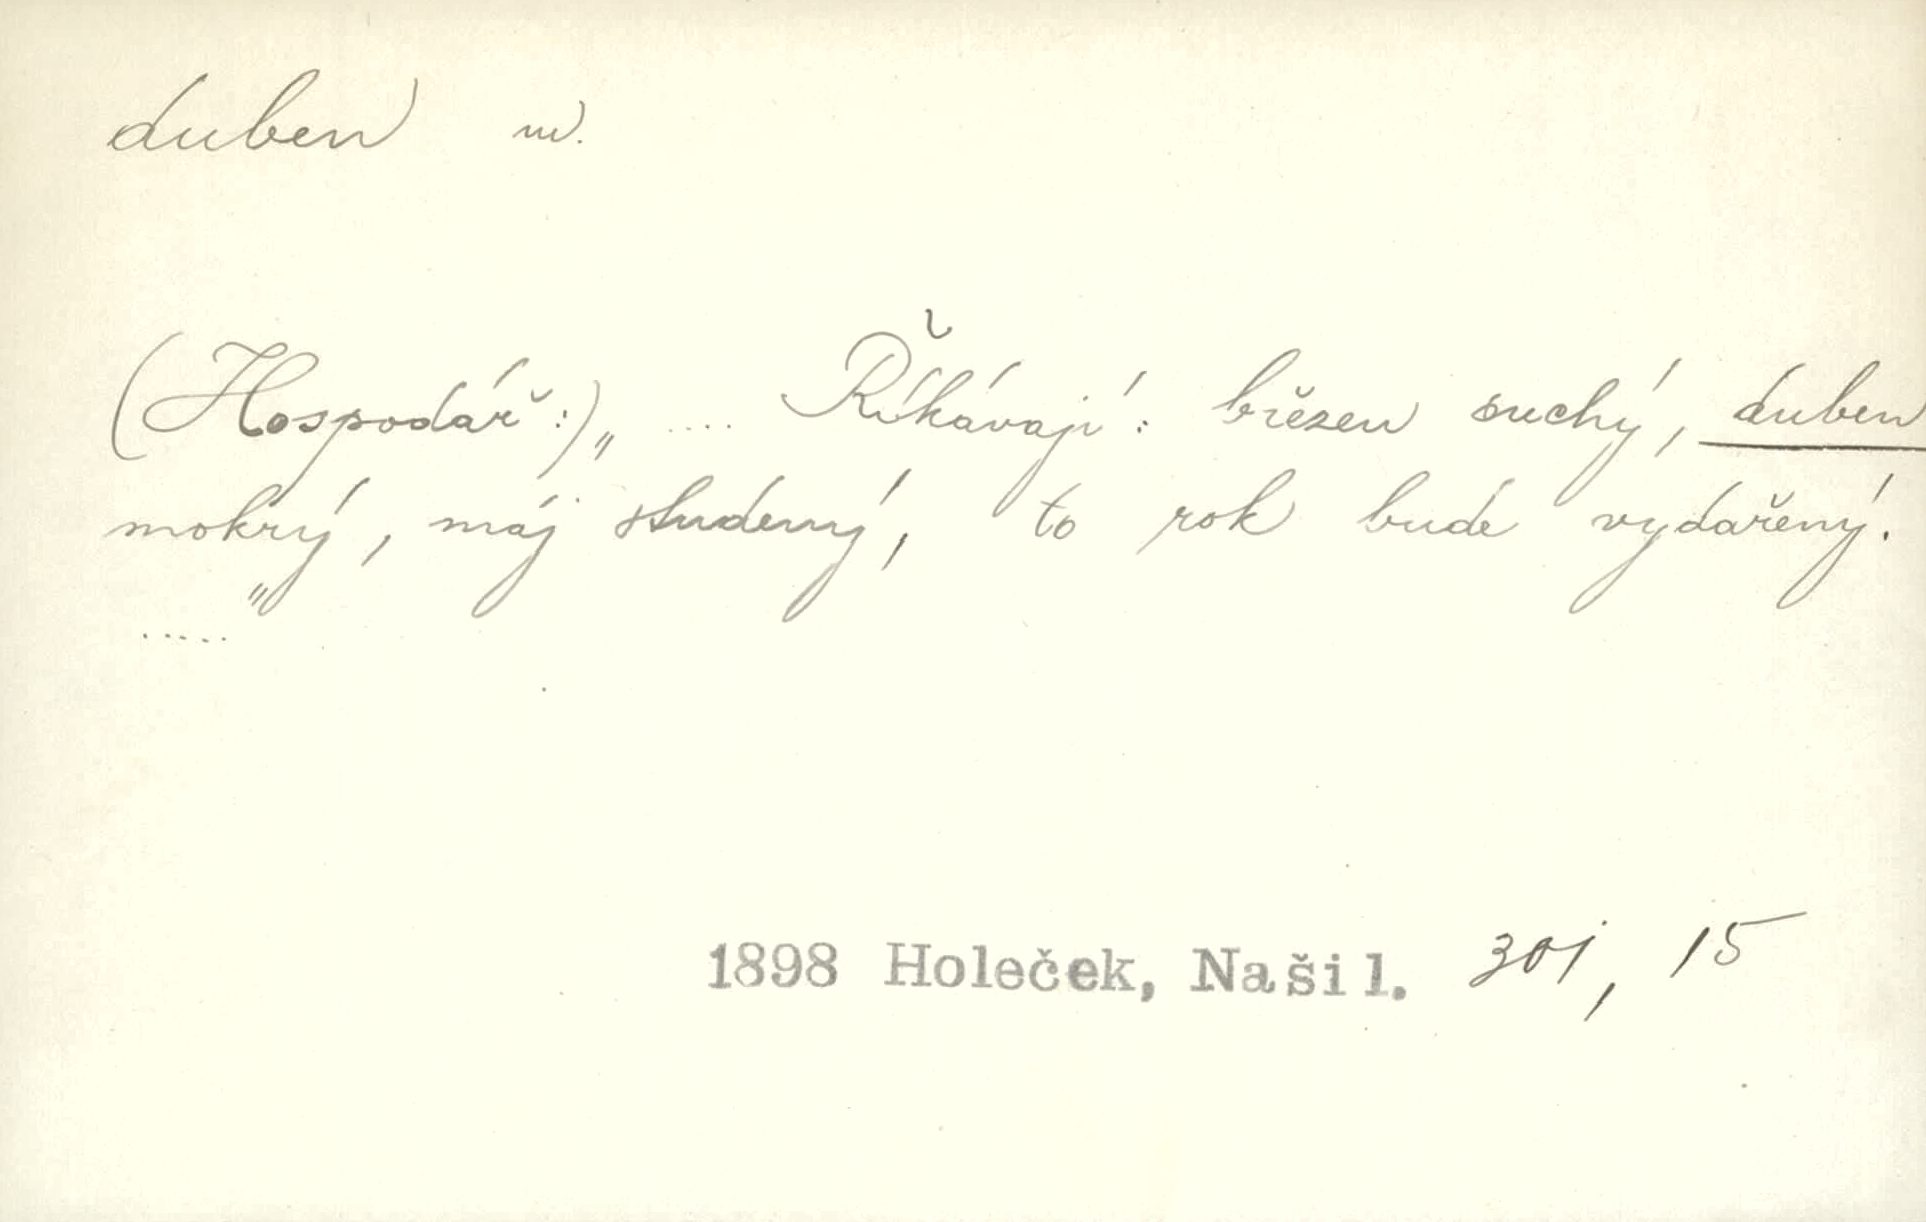 duben m.
(Hospodář:) „ .... Říkávají: březen suchý, duben
mokrý, máj studený, to rok bude vydařený.
..... "
1898 Holeček, Naši 1. 301, 15